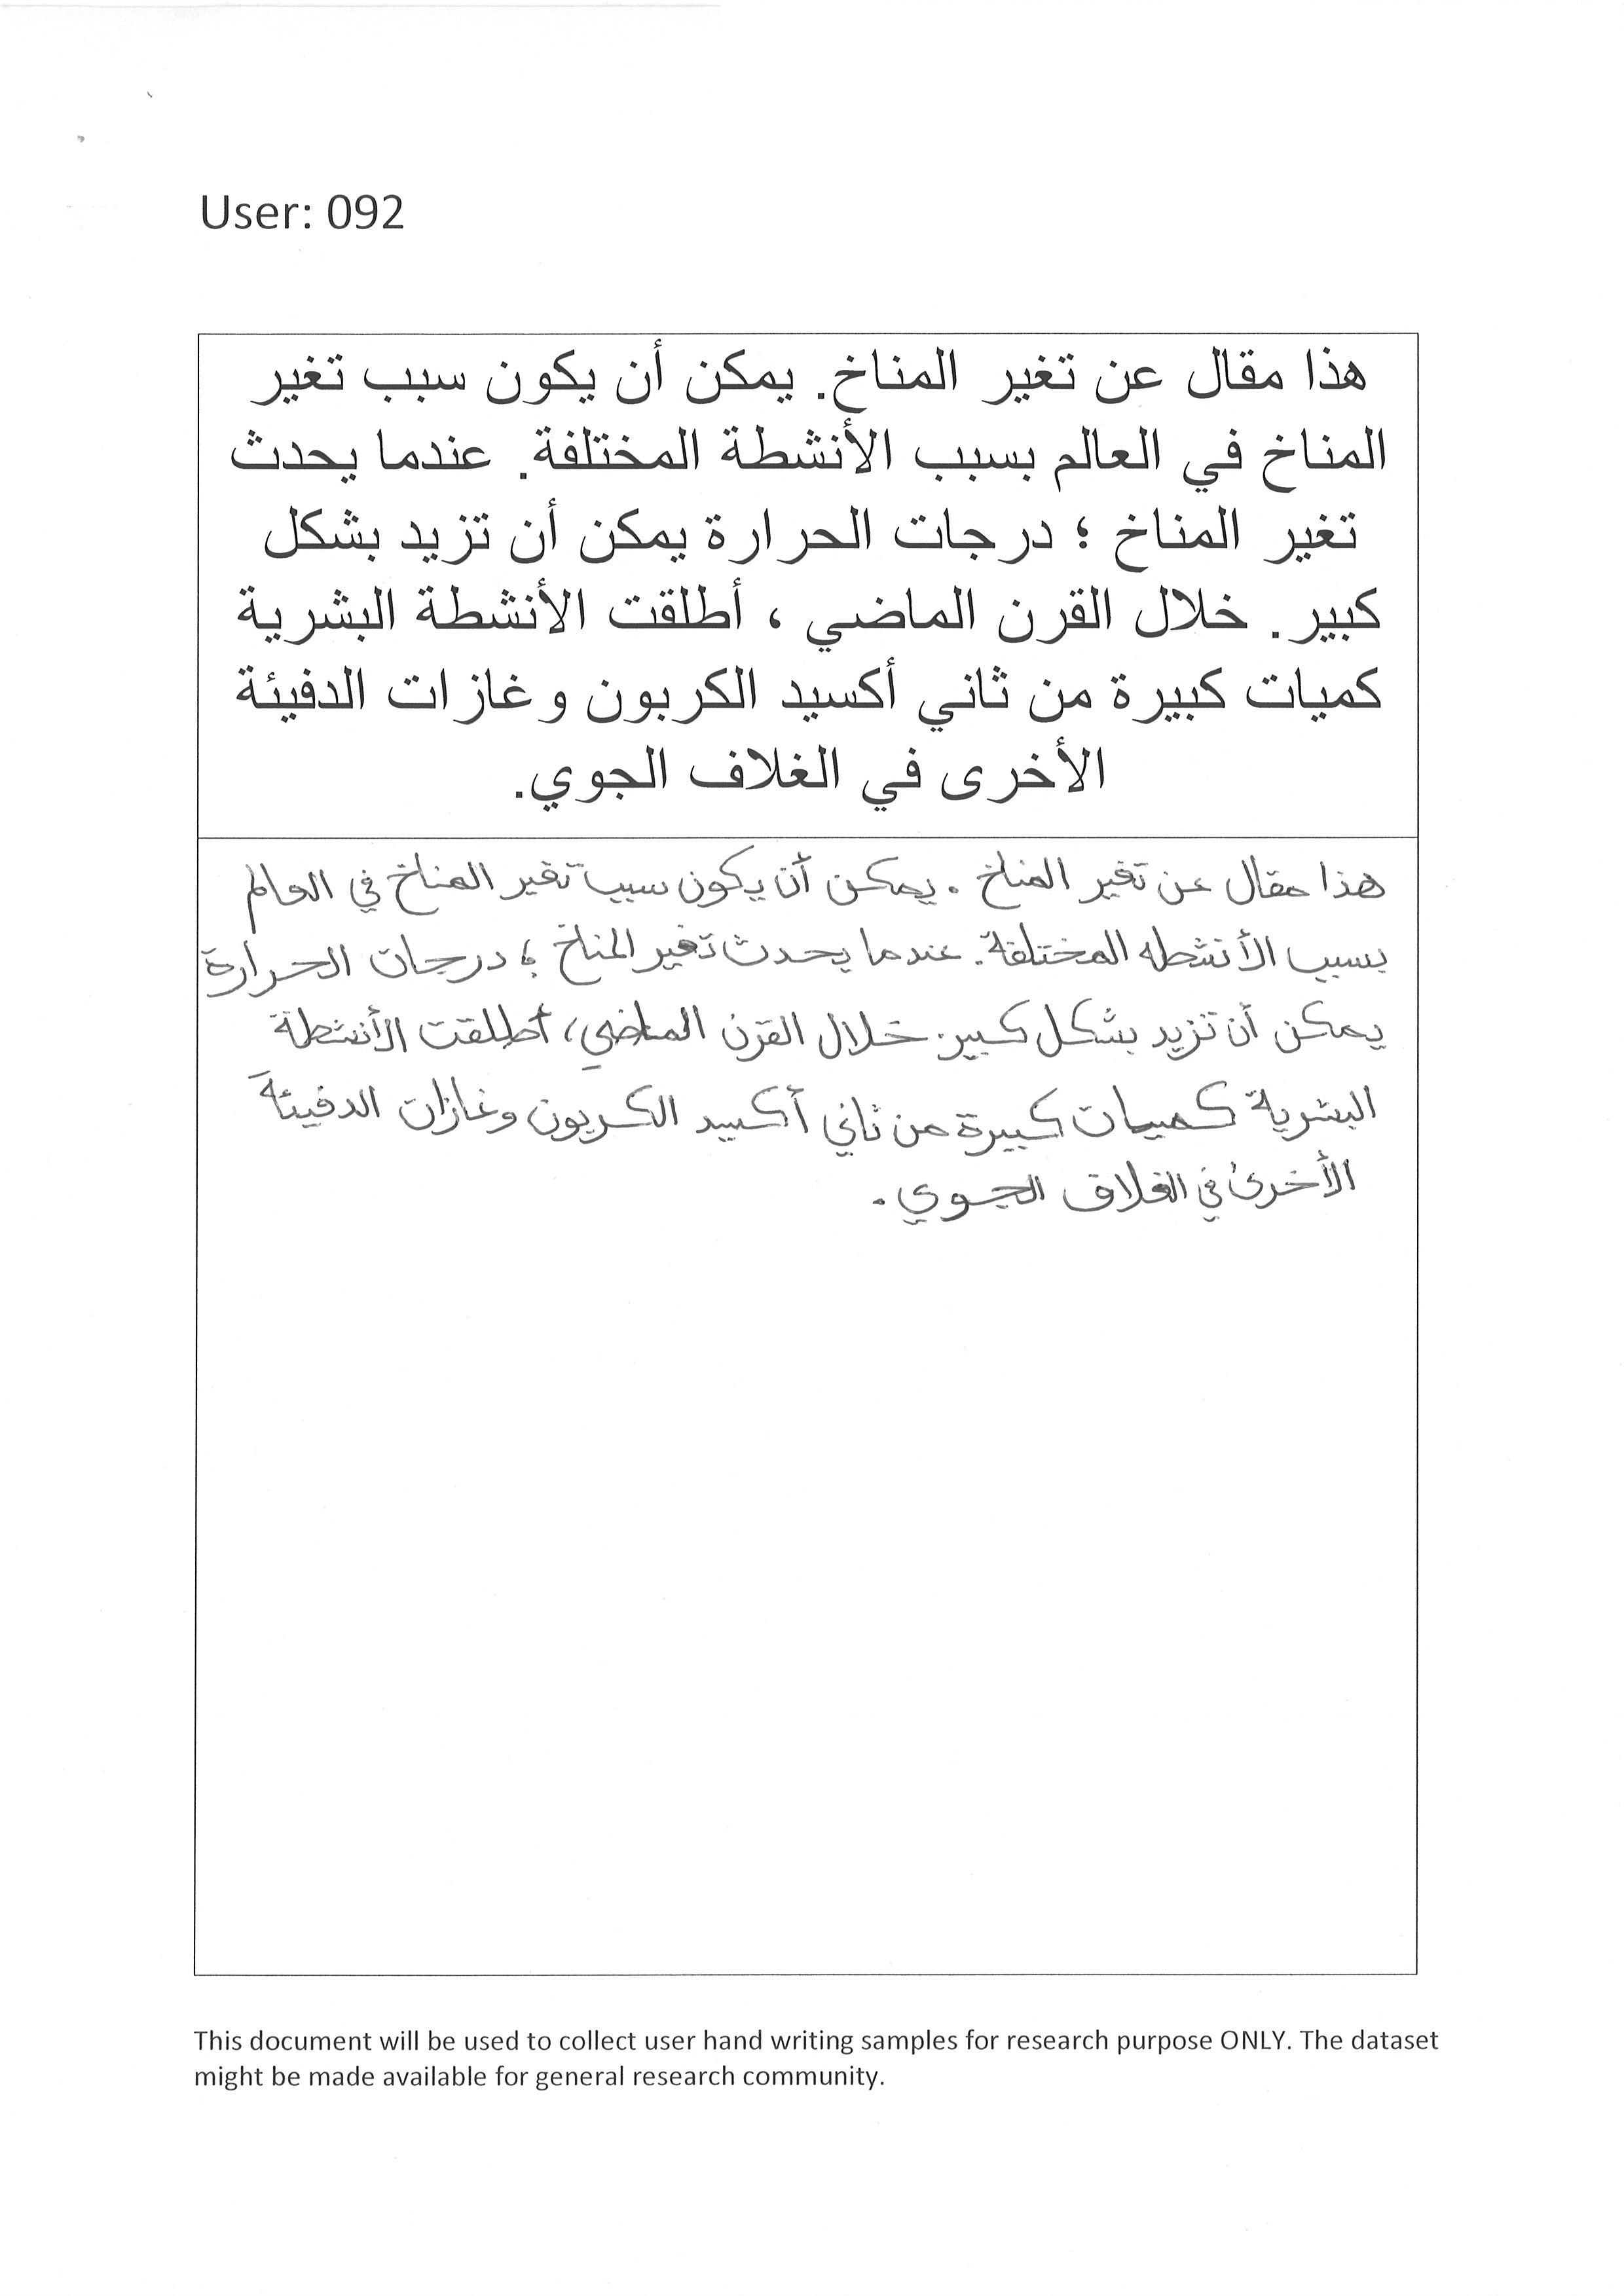 User: 092
هذا مقال عن تغير المناخ. يمكن أن يكون سبب تغير
المناخ في العالم بسبب الأنشطة المختلفة. عندما يحدث
تغير المناخ ؛ درجات الحرارة يمكن أن تزيد بشكل
كبير. خلال القرن الماضي ، أطلقت الأنشطة البشرية
كميات كبيرة من ثاني أكسيد الكربون وغازات الدفيئة
الأخرى في الغلاف الجوي.
هذا مقال عن تغير المناخ . يمكن أن يكون سبب تغير المناخ في العالم
بسبب الأنشطه المختلفة. عندما يحدث تغير المناخ ؛ درجات الحرارة
يمكن أن تزيد بشكل كبير. خلال القرن الماضي، أطلقت الأنشطة
البشرية كميات كبيرة من ثاني أكسيد الكربون وغازات الدفيئة
الأخرى في الغلاف الجوي .
This document will be used to collect user hand writing samples for research purpose ONLY. The dataset
might be made available for general research community.